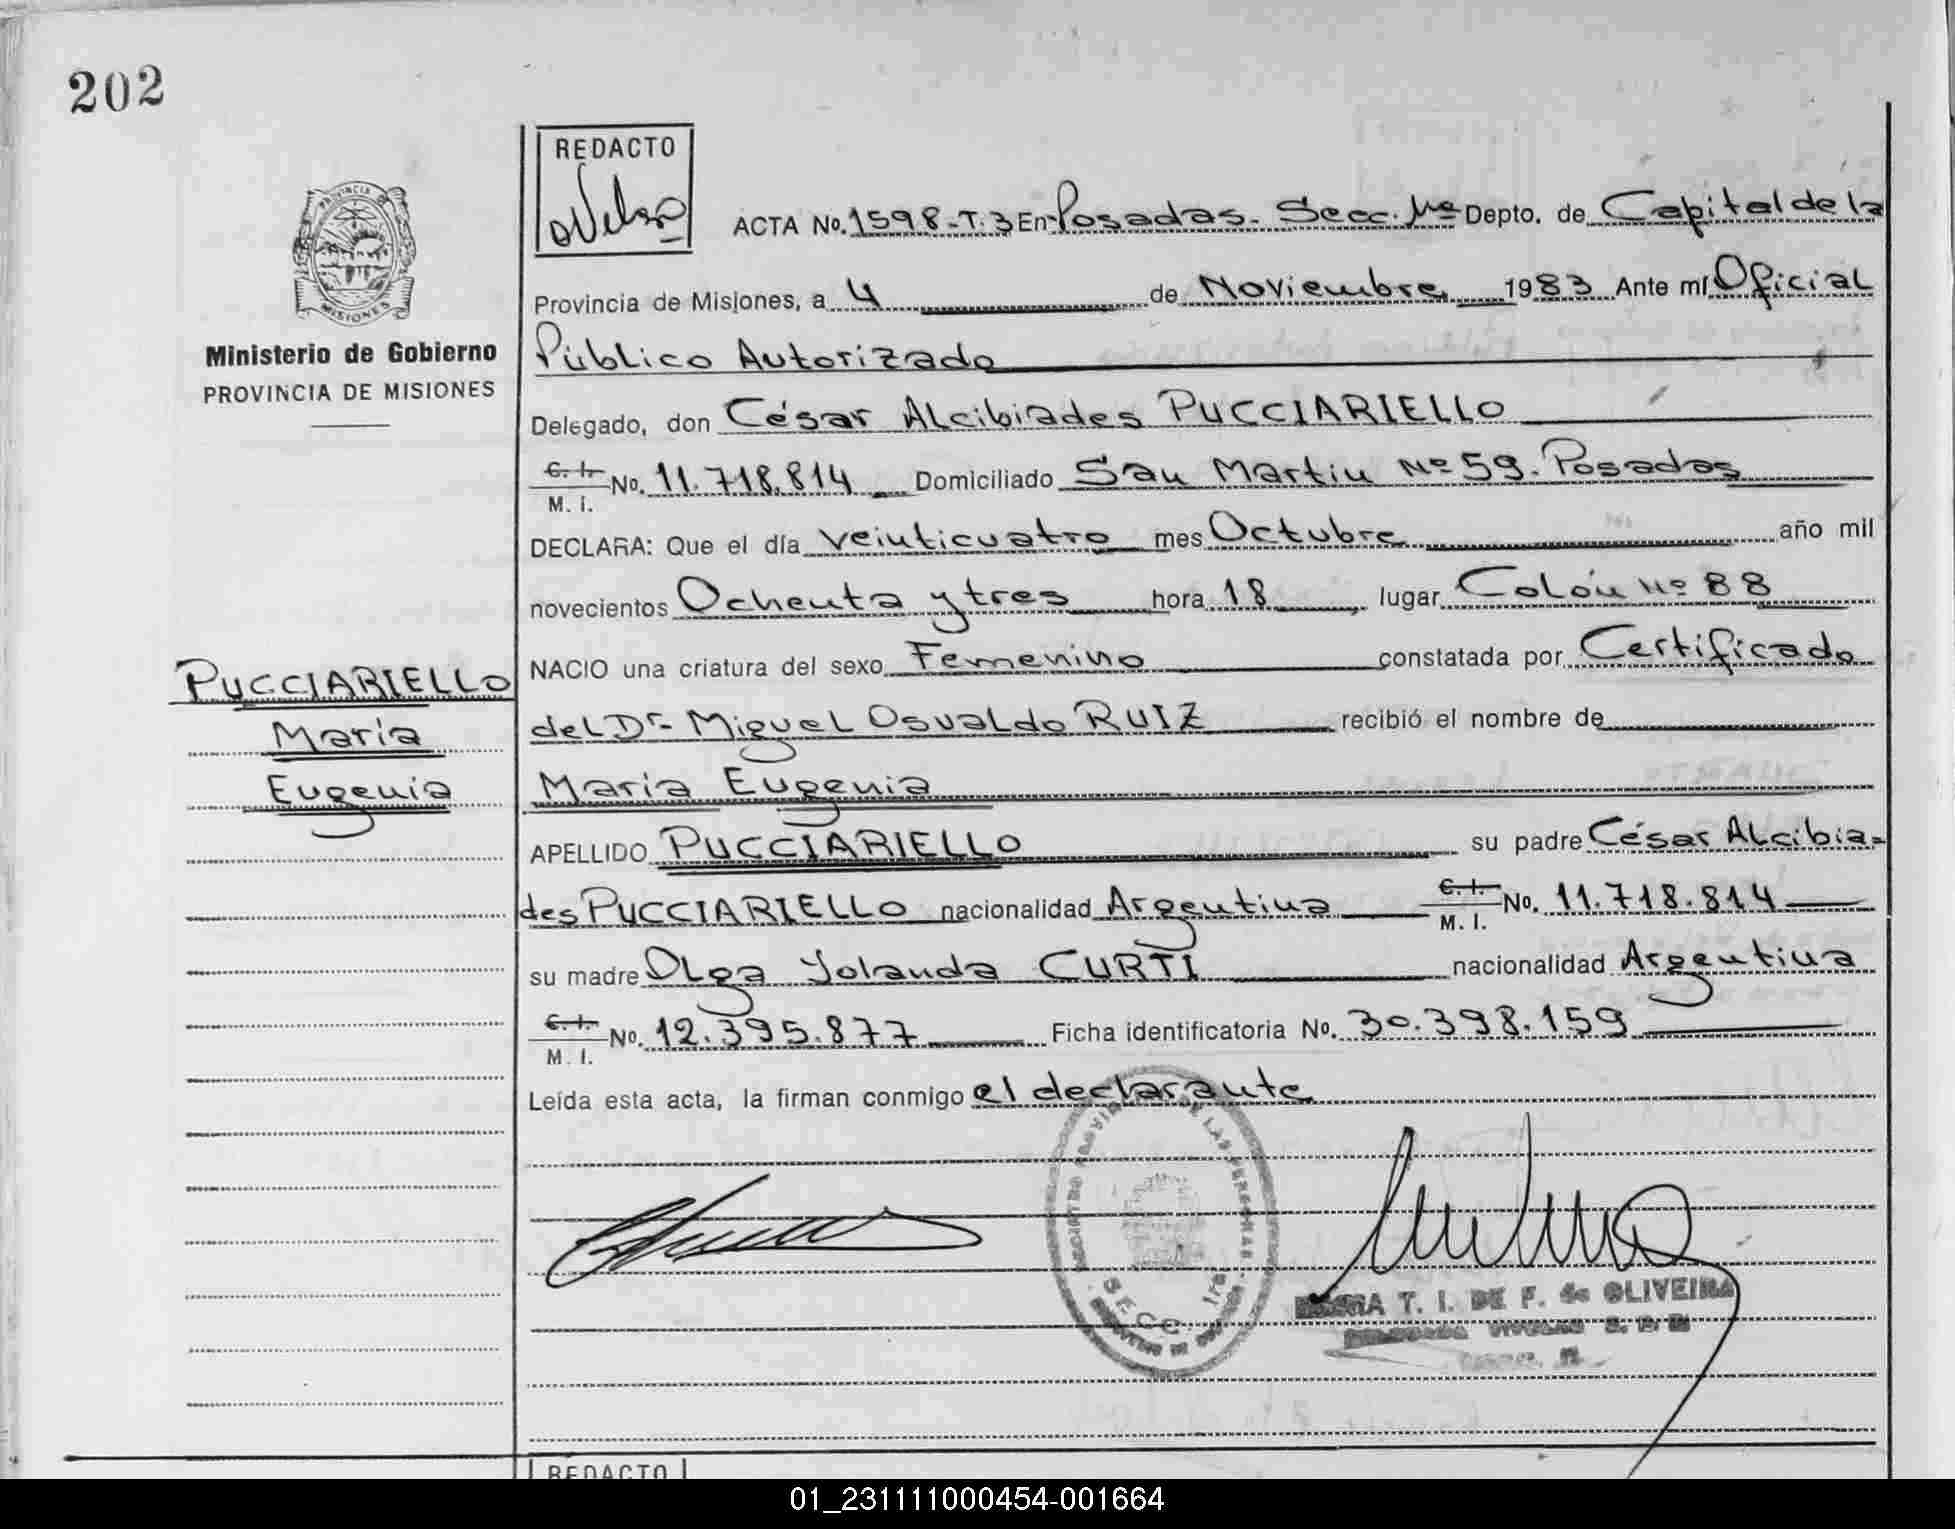 202
REDACTO
PROVINCIA DE
MISIONES
ACTA No. 1598-T.3 En Posadas. Secc. 1ra Depto. de Capital de la
Provincia de Misiones, a 4 de Noviembre 1983 Ante mí Oficial
Ministerio de Gobierno
PROVINCIA DE MISIONES
Público Autorizado
Delegado, don César Alcibiades PUCCIARIELLO
C. I.
M. I. No. 11.718.814 Domiciliado San Martin Nº 59. Posadas
DECLARA: Que el día veinticuatro mes Octubre año mil
novecientos Ochenta y tres hora 18 lugar Colón Nº 88
NACIO una criatura del sexo Femenino constatada por Certificado
PUCCIARIELLO
María
Eugenia
del Dr. Miguel Osvaldo RUIZ recibió el nombre de
María Eugenia
APELLIDO PUCCIARIELLO su padre César Alcibia=
des PUCCIARIELLO nacionalidad Argentina C. I. M. I. No. 11.718.814
su madre Olga Yolanda CURTI nacionalidad Argentina
C. I.
M. I. No. 12.395.877 Ficha identificatoria No. 30.398.159
Leída esta acta, la firman conmigo el declarante
DE LAS PERSONAS
SECC. 1ra
T. I. DE F. de OLIVEIRA
REDACTO
01_231111000454-001664